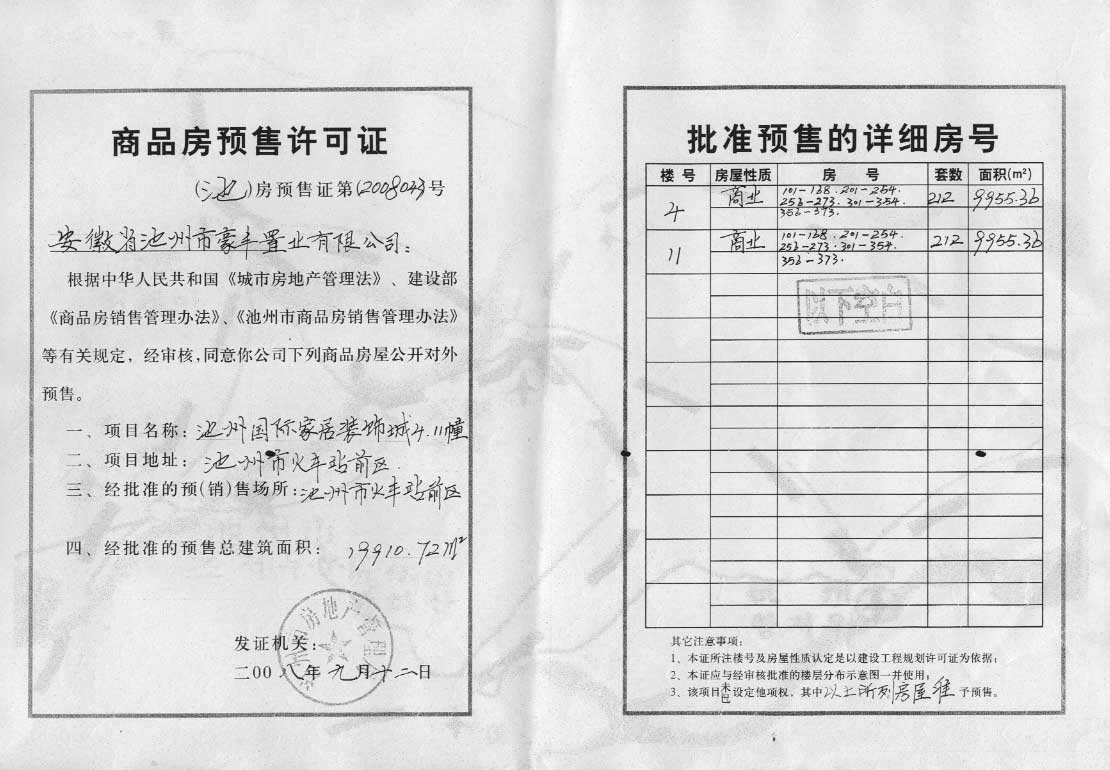 商品房预售许可证
(池)房预售证第(2008043号
安徽省池州市豪丰置业有限公司：
根据中华人民共和国《城市房地产管理法》、建设部
《商品房销售管理办法》、《池州市商品房销售管理办法》
等有关规定，经审核，同意你公司下列商品房屋公开对外
预售。
一、项目名称：池州国际家居装饰城4.11幢
二、项目地址：池州市火车站前区
三、经批准的预(销)售场所：池州市火车站前区
四、经批准的预售总建筑面积：19910.72㎡
房地产管理
发证机关：
二00八年九月十二日
批准预售的详细房号
楼号 房屋性质 房号 套数 面积(m²)
4 商业 101-168.201-254. 212 9955.36
256-273.301-354.
356-373.
11 商业 101-168.201-254. 212 9955.36
256-273.301-354.
356-373.
以下空白
其它注意事项：
1、本证所注楼号及房屋性质认定是以建设工程规划许可证为依据；
2、本证应与经审核批准的楼层分布示意图一并使用；
3、该项目未已设定他项权，其中以上所列房屋准予预售。